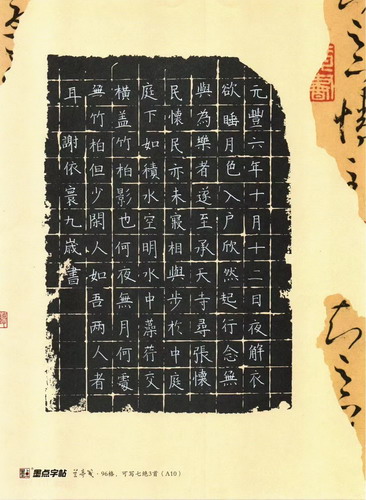 元豐六年十月十二日夜解衣
欲睡月色入户欣然起行念無
與為樂者遂至承天寺尋張懷
民懷民亦未寢相與步於中庭
庭下如積水空明水中藻荇交
橫盖竹柏影也何夜無月何處
無竹柏但少閑人如吾兩人者
耳 謝依寰九歲書
墨点字帖 · 96格，可写七绝3首（A10）